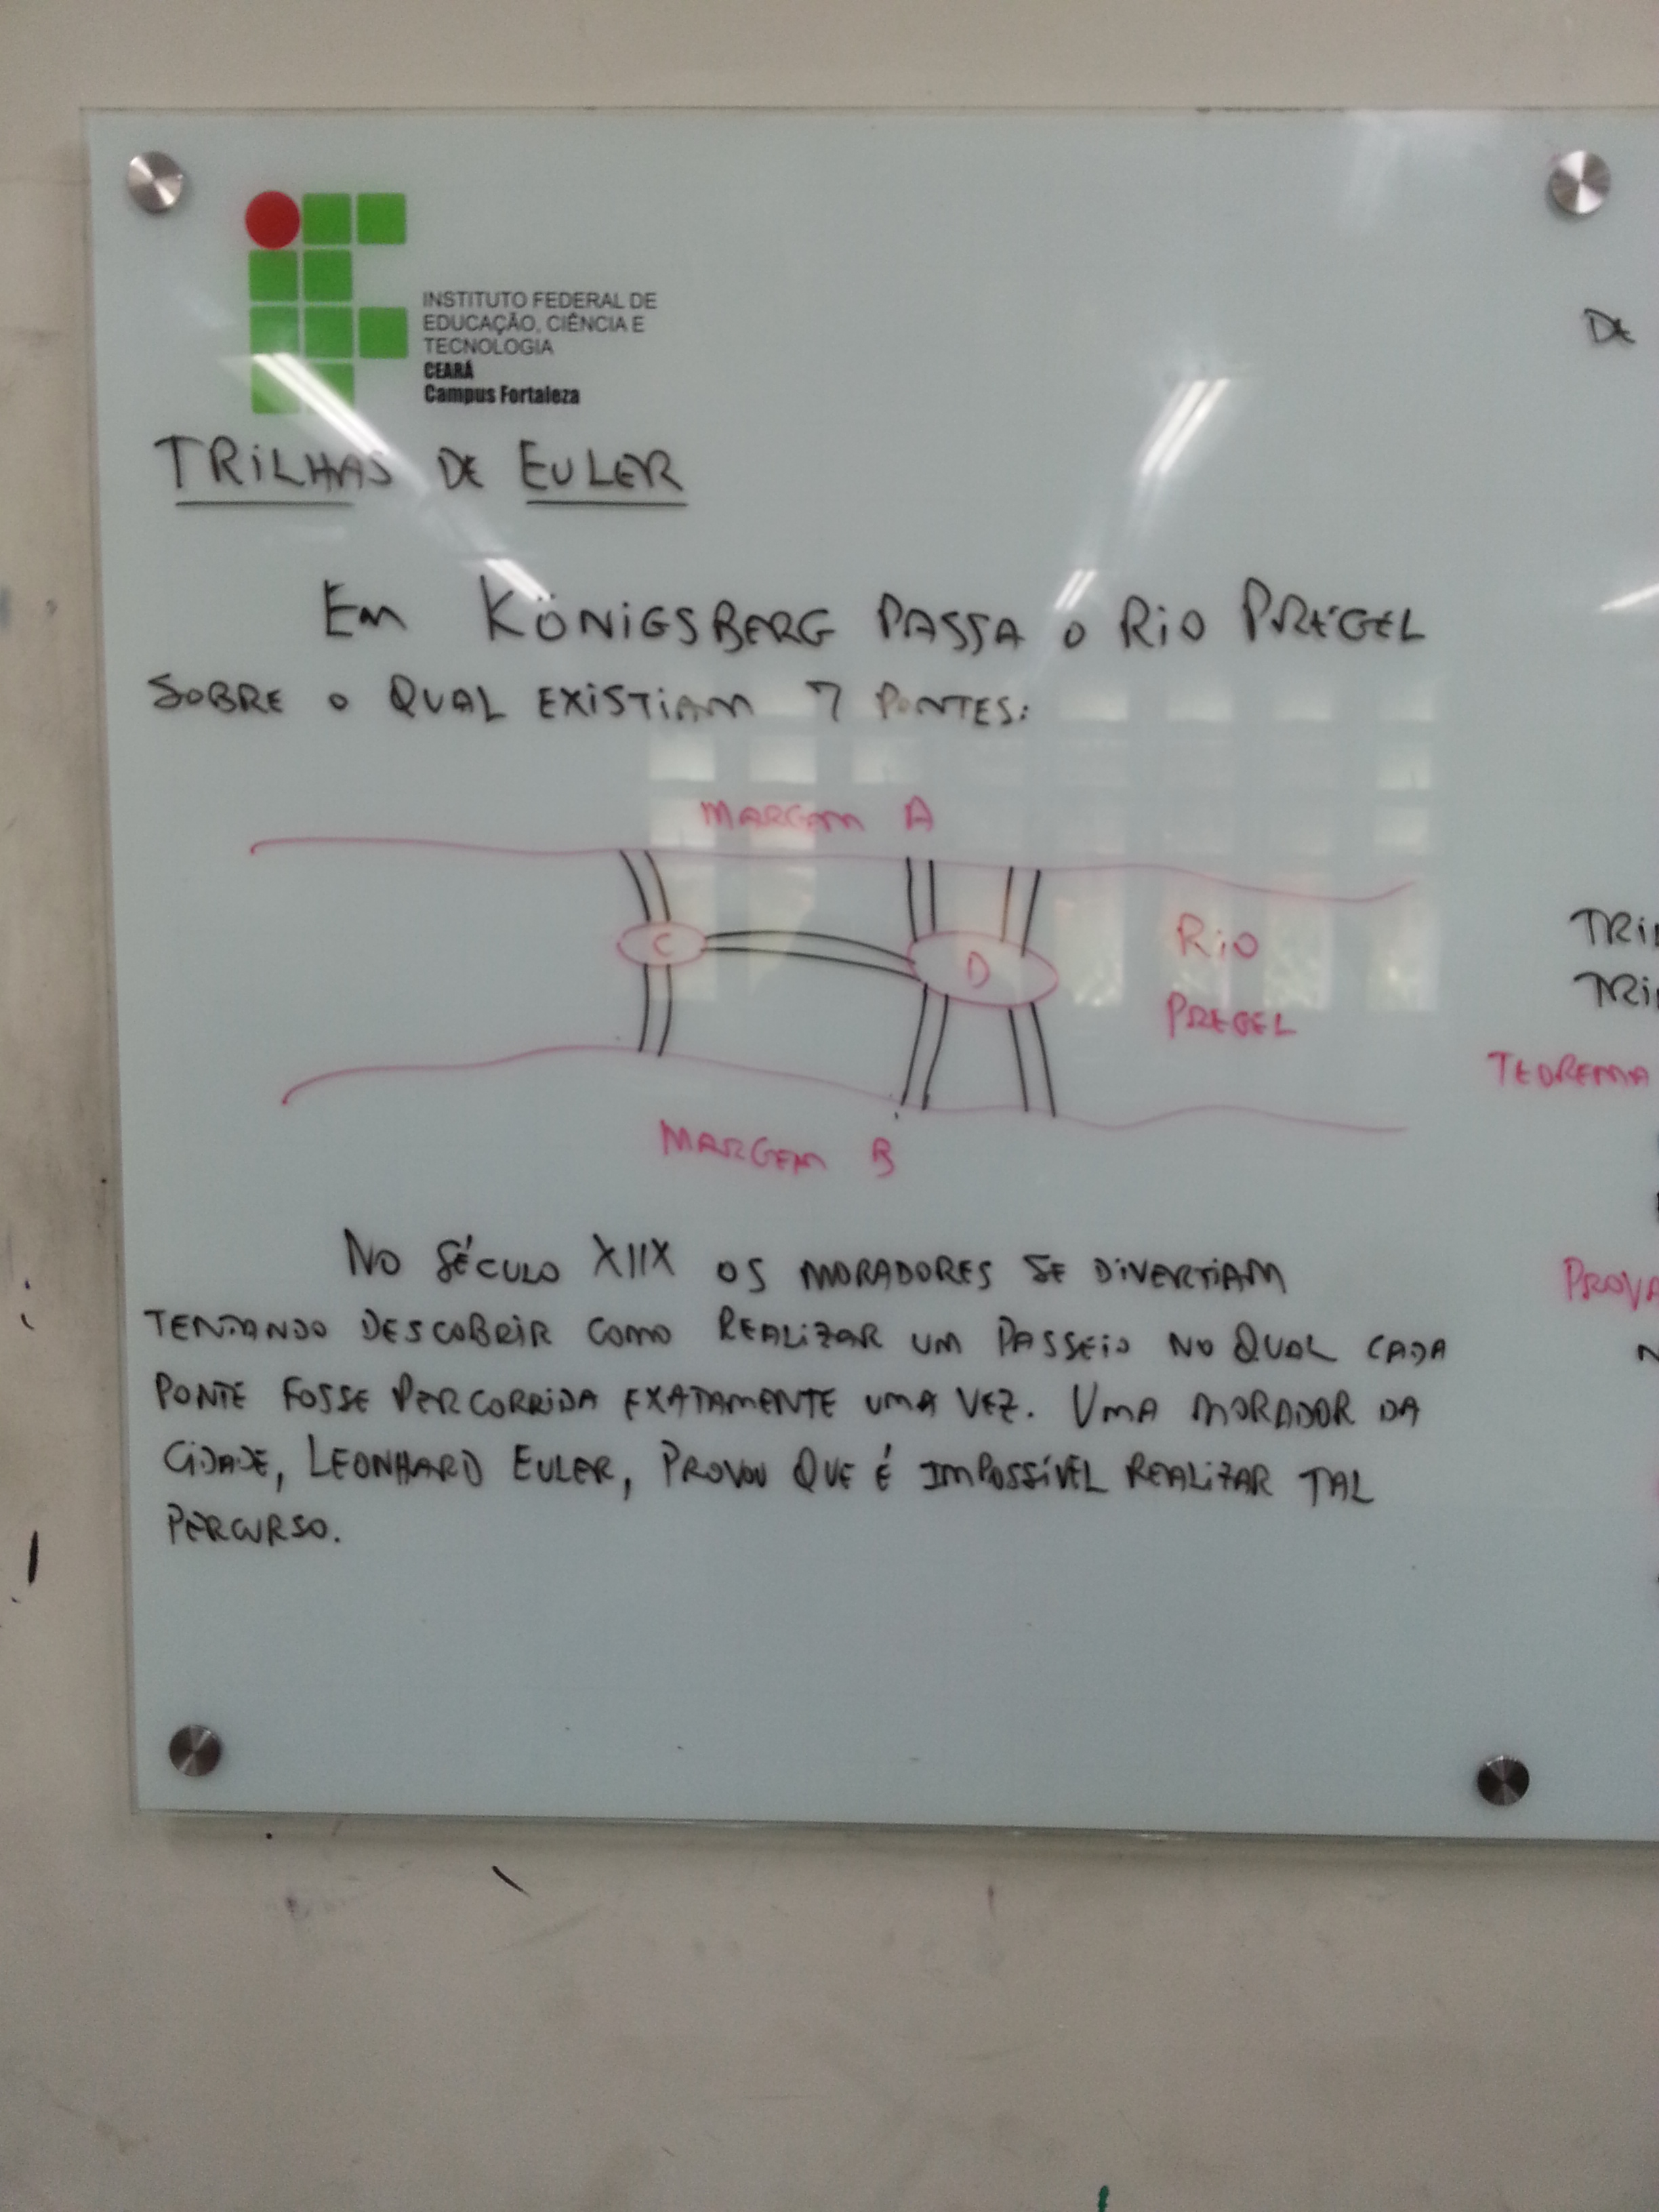 INSTITUTO FEDERAL DE
EDUCAÇÃO, CIÊNCIA E
TECNOLOGIA
CEARÁ
Campus Fortaleza
TRILHAS DE EULER
EM KÖNIGSBERG PASSA O RIO PREGEL
SOBRE O QUAL EXISTIAM 7 PONTES:
MARGEM A
C
D
RIO
PREGEL
MARGEM B
NO SÉCULO XIIX OS MORADORES SE DIVERTIAM
TENTANDO DESCOBRIR COMO REALIZAR UM PASSEIO NO QUAL CADA
PONTE FOSSE PERCORRIDA EXATAMENTE UMA VEZ. UMA MORADOR DA
CIDADE, LEONHARD EULER, PROVOU QUE É IMPOSSÍVEL REALIZAR TAL
PERCURSO.
DE
TEOREMA